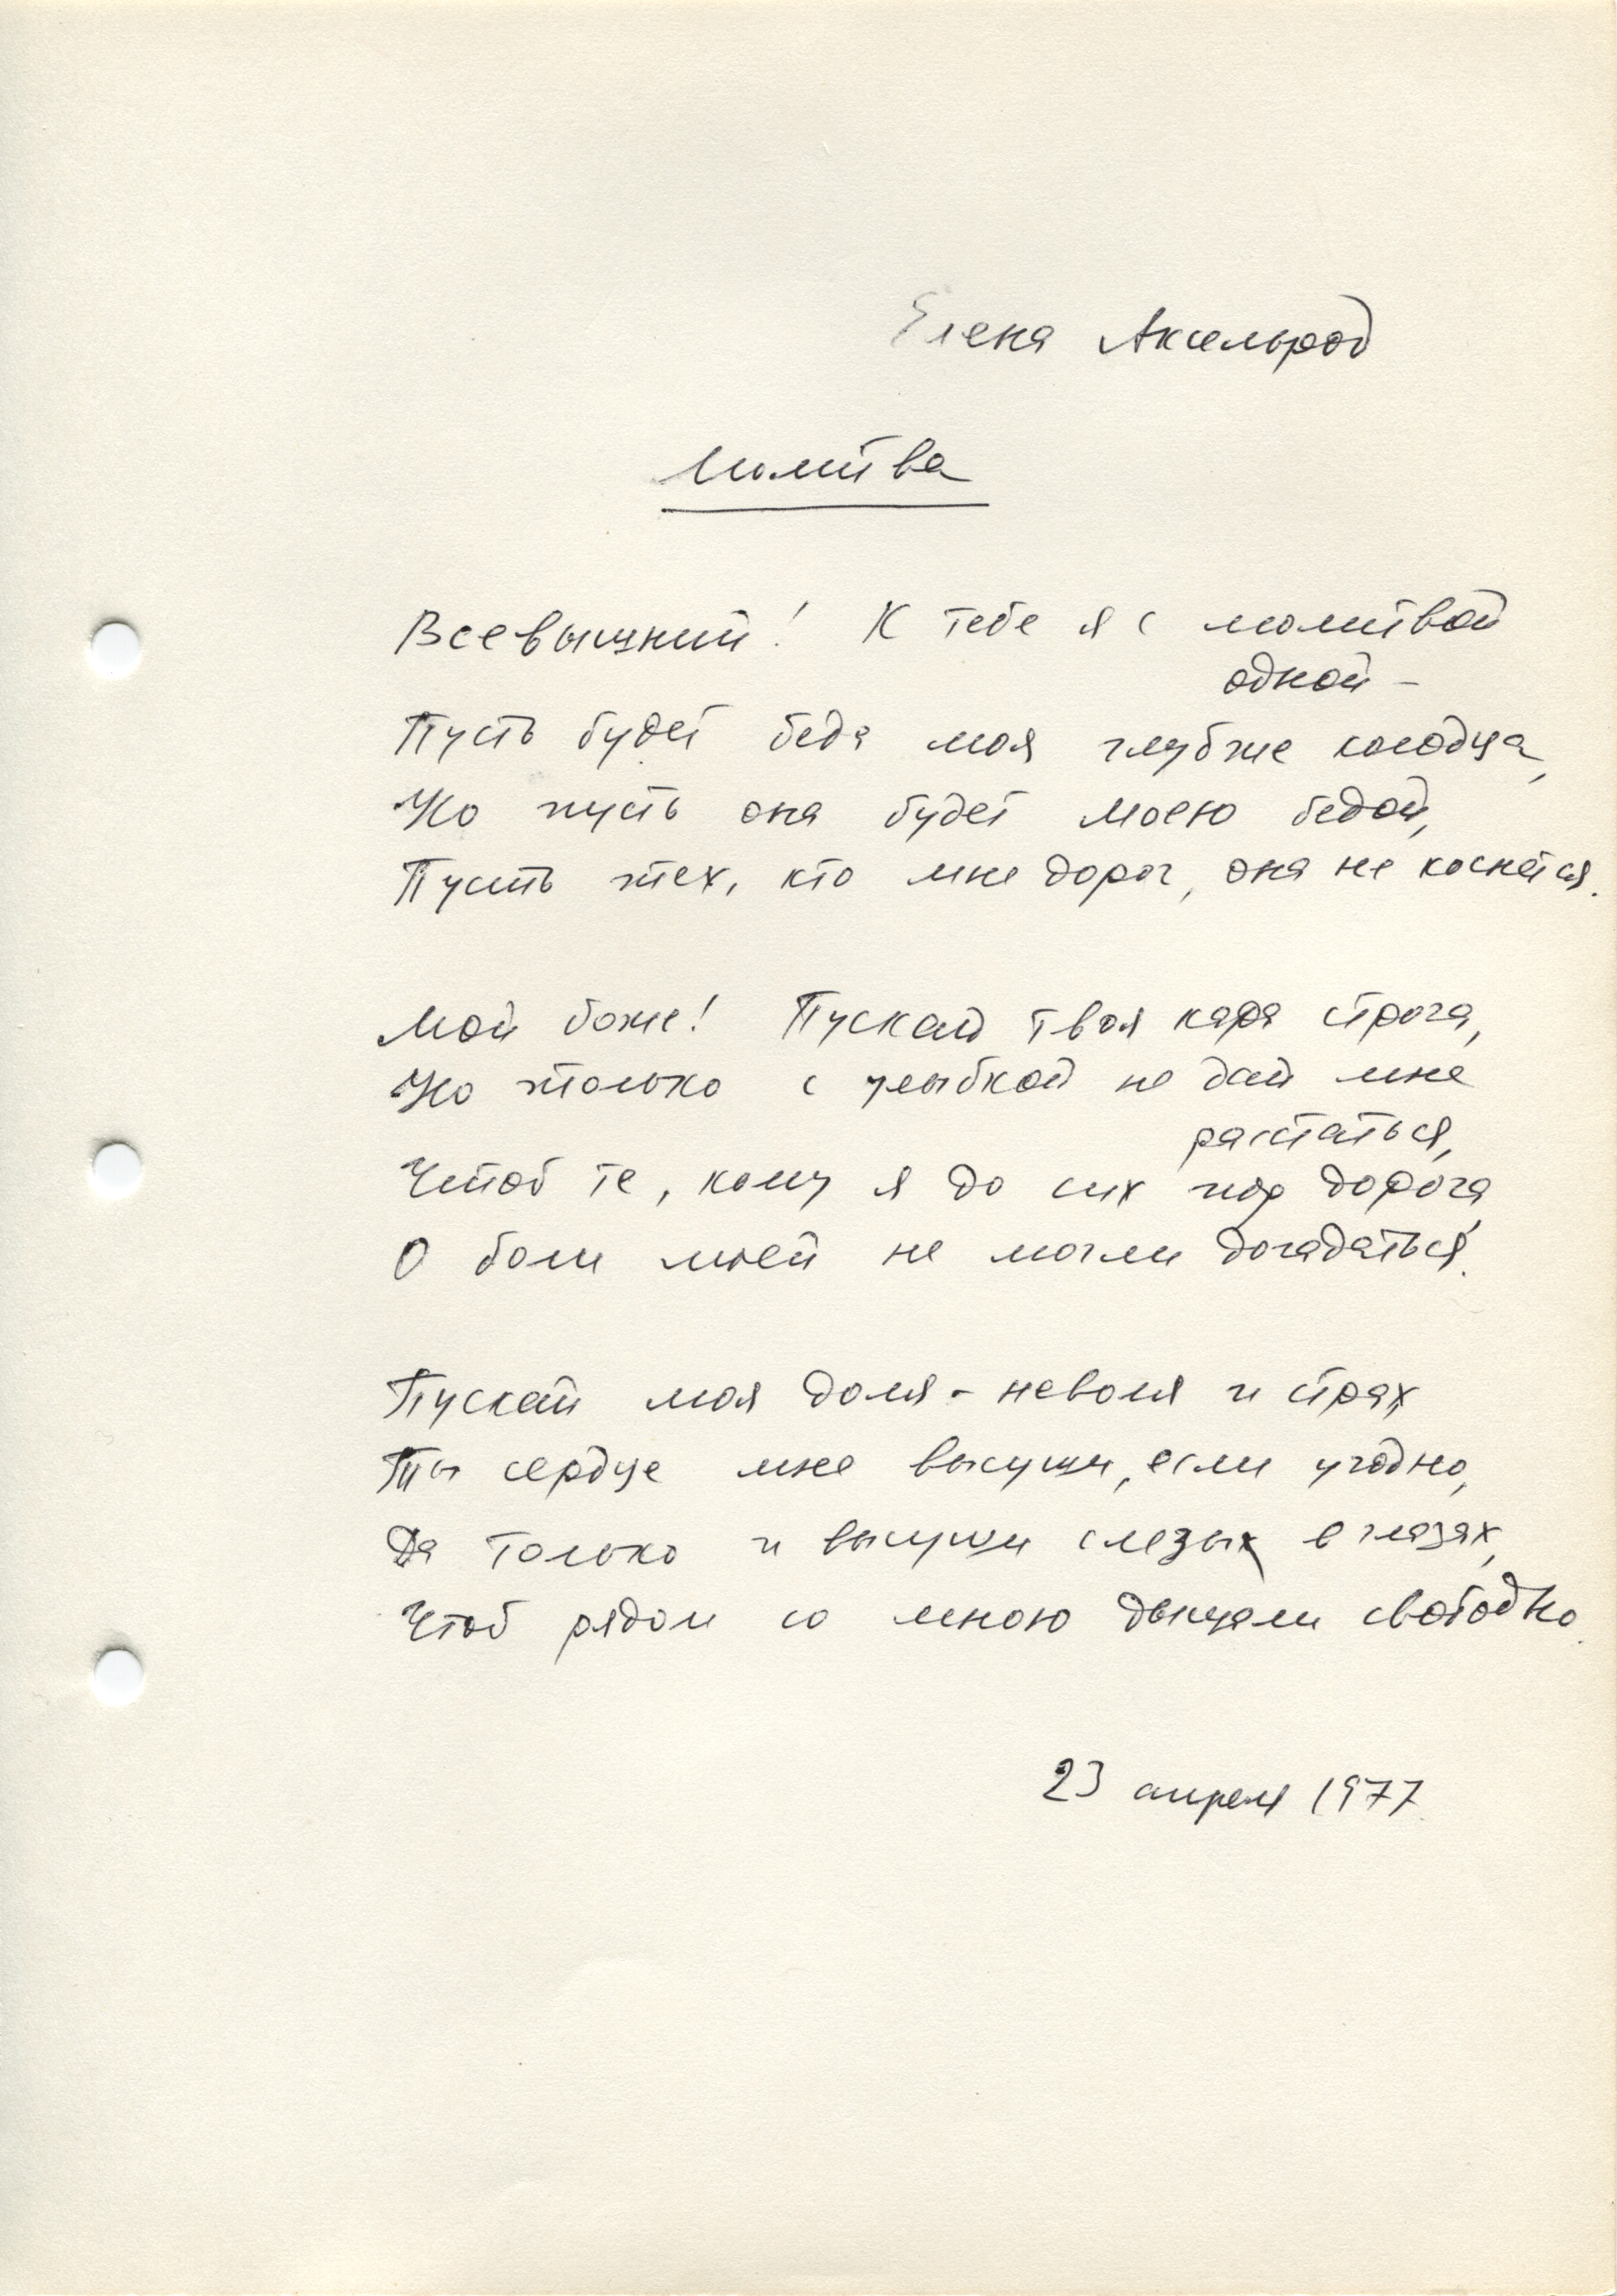 Елена Аксельрод
Молитва
Всевышний! К тебе я с молитвой
одной –
Пусть будет беда моя глубже колодца,
Но пусть она будет моею бедой,
Пусть тех, кто мне дорог, она не коснется.
Мой боже! Пускай твоя кара строга,
Но только с улыбкой не дай мне
расстаться,
Чтоб те, кому я до сих пор дорога,
О боли моей не могли догадаться.
Пускай моя доля - неволя и страх,
Ты сердце мне высуши, если угодно,
Да только и высуши слезы в глазах,
Чтоб рядом со мною дышали свободно.
23 апреля 1977